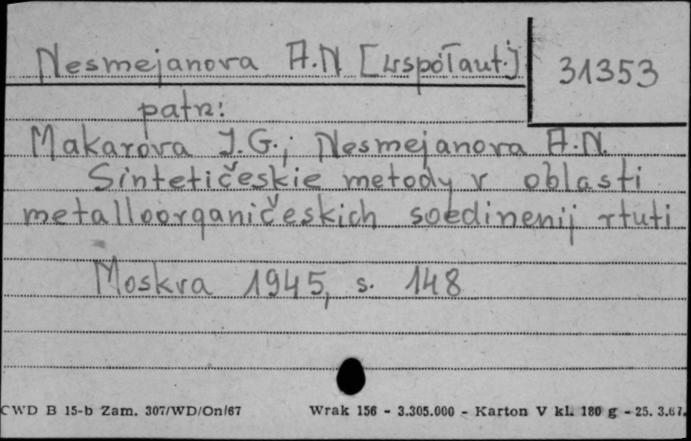 Nesmejanova A.N. [współaut.]
31353
patrz:
Makarova I.G.; Nesmejanova A.N.
Sintetičeskie metody v oblasti
metalloorganičeskich soedinenij rtuti
Moskva 1945, s. 148
CWD B 15-b Zam. 307/WD/On/67 Wrak 156 - 3.305.000 - Karton V kl. 180 g - 25. 3.67.